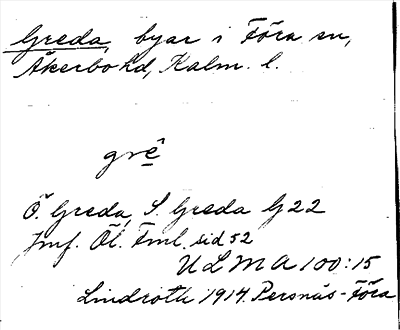 Greda, byar i Föra sn,
Åkerbo hd, Kalm. l.
grê
Ö. Greda, S. Greda G22
Jmf. Öl. Fml. sid 52
ULMA 100:15
Lindroth 1914. Persnäs-Föra